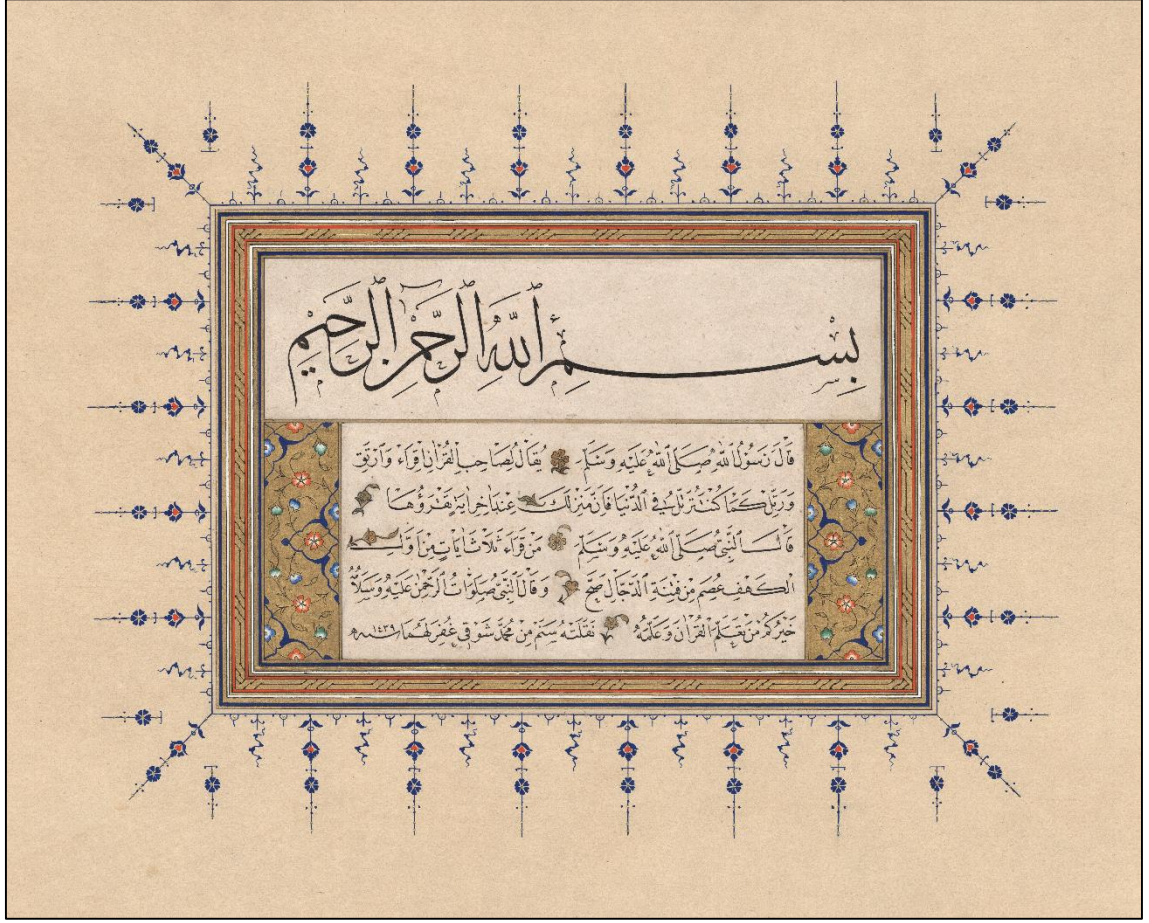 بِسْمِ ٱللَّهِ ٱلرَّحْمٰنِ ٱلرَّحِيمِ
قَالَ رَسُولُ اللّٰهِ صَلَّى اللّٰهُ عَلَيْهِ وَسَلَّمَ يُقَالُ لِصَاحِبِ الْقُرْاٰنِ اقْرَاءْ وَارْتَقِ
وَرَتِّلْ كَمَا كُنْتَ تُرَتِّلُ فِي الدُّنْيَا فَاِنَّ مَنْزِلَكَ عِنْدَ اٰخِرِ اٰيَةٍ تَقْرَؤُهَا
قَالَ النَّبِيُّ صَلَّى اللّٰهُ عَلَيْهِ وَسَلَّمَ مَنْ قَرَاءَ ثَلَاثَ اٰيَاتٍ مِنْ اَوَّلِ
الْكَهْفِ عُصِمَ مِنْ فِتْنَةِ الدَّجَّالِ صح وَقَالَ النَّبِيُّ صَلَوَاتُ الرَّحْمٰنِ عَلَيْهِ وَسَلَامُهُ
خَيْرُكُمْ مَنْ تَعَلَّمَ الْقُرْاٰنَ وَعَلَّمَهُ نَقَلْتُهُ مِنْ مُحَمَّدْ شَوْقِي غُفِرَ لَهُمَا سنه ١٤٣٩